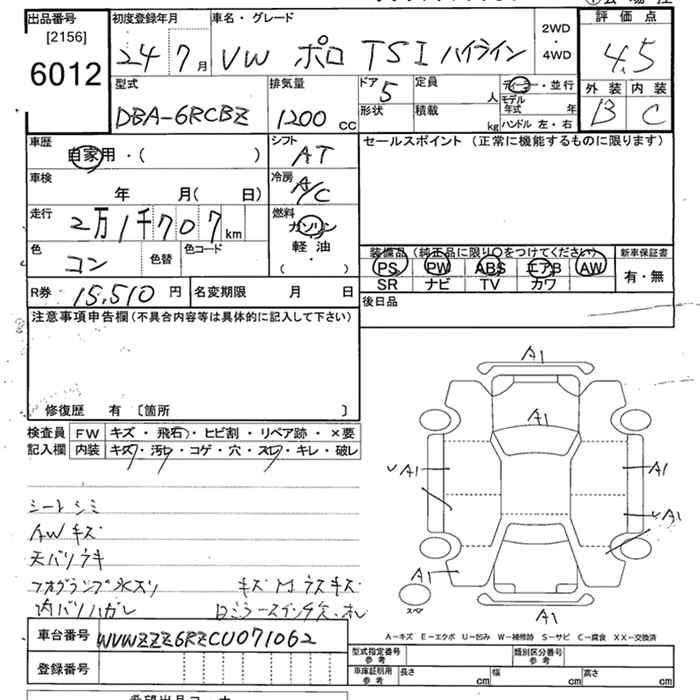 出品番号 初度登録年月 車名・グレード 2WD 評価点
[2156] 24 7月 VW ポロ TSI ハイライン ・ 4.5
6012 4WD
型式 排気量 ドア 5 定員 人 ディーラー・並行 外装 内装
DBA-6RCBZ 1200 cc 形状 積載 kg モデル年式 年 B C
ハンドル 左・右
車歴 自家用・( ) シフト AT セールスポイント (正常に機能するものに限ります)
車検 年 月( 日) 冷房 A/C
走行 2万1千707km 燃料 ガソリン
軽油
( ・ )
色 コン 色替 色コード 装備品 (純正品に限り〇をつけてください) 新車保証書
PS PW ABS エアB AW 有・無
SR ナビ TV カワ
R券 15,510円 名変期限 月 日 後日品
注意事項申告欄(不具合内容等は具体的に記入して下さい)
修復歴 有 〔箇所 〕
検査員 FW キズ・飛石・ヒビ割・リペア跡・×要
記入欄 内装 キズ・汚れ・コゲ・穴・スレ・キレ・破レ
A1
A1
A1 A1
A1
A1
A1
シートシミ
AWキズ
天バリウキ
フォグランプ水入り キズ
内バリハガレ
スペア
A-キズ E-エクボ U-凹み W-補修跡 S-サビ C-腐食 XX-交換済
車台番号 WVWZZZ6RZCU071062
型式指定番号 参考 類別区分番号 参考
登録番号 車庫証明用 参考 長さ cm 幅 cm 高さ cm